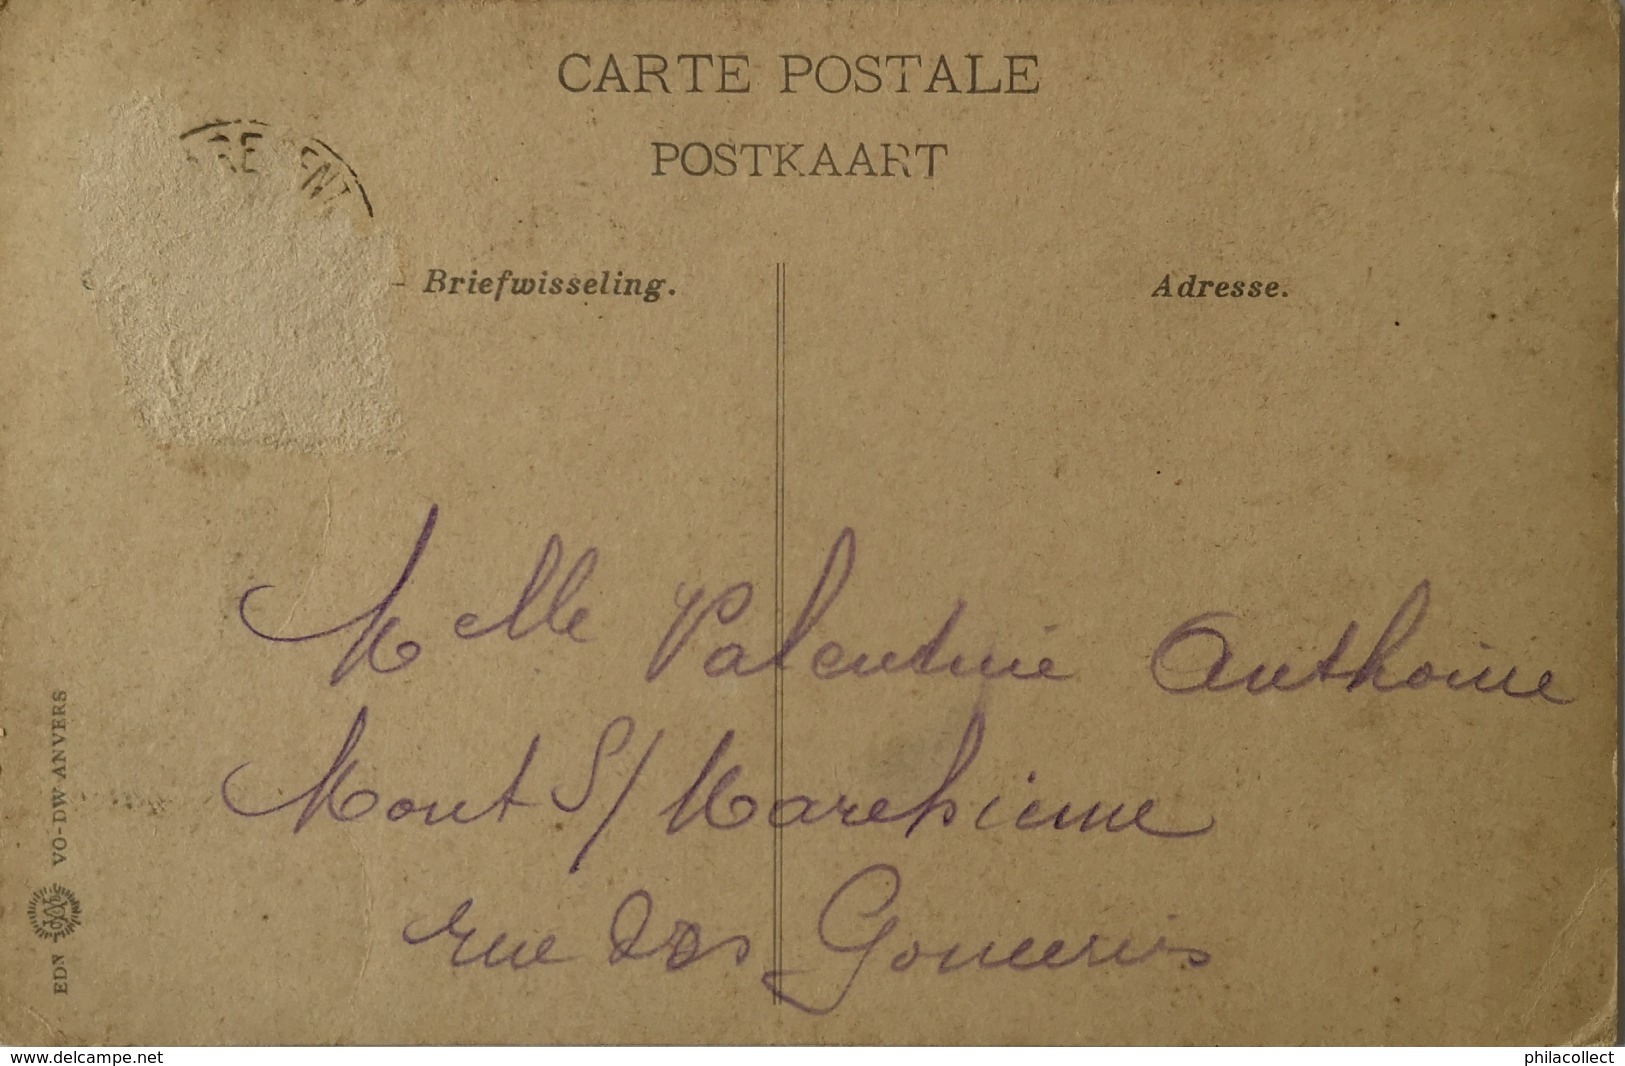 CARTE POSTALE
POSTKAART
– Briefwisseling.
Adresse.
Melle Valentine Anthoine
Mont S/ Marchienne
rue des
EDN VO-DW ANVERS
www.delcampe.net
philacollect